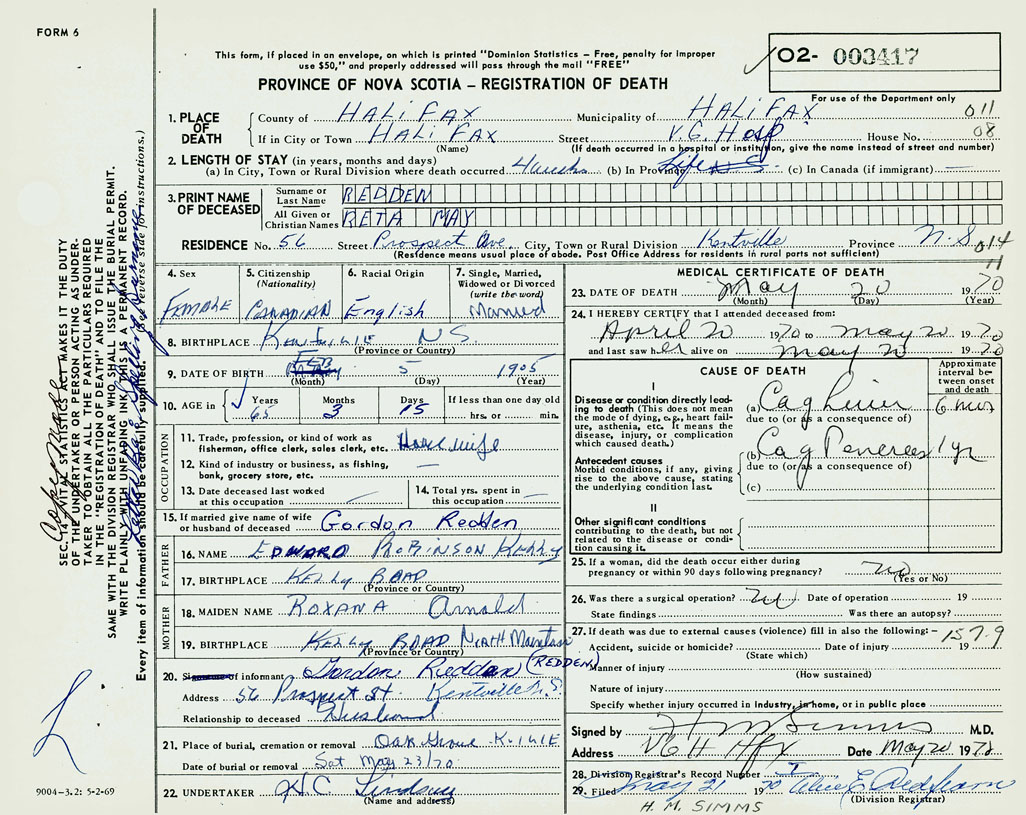 FORM 6
This form, if placed in an envelope, on which is printed "Dominion Statistics – Free, penalty for improper
use $50," and properly addressed will pass through the mail "FREE"
PROVINCE OF NOVA SCOTIA – REGISTRATION OF DEATH
02- 003417
For use of the Department only
1. PLACE OF DEATH
County of HALIFAX Municipality of HALIFAX 011
If in City or Town HALIFAX Street V.G. Hosp House No. 08
(Name) (If death occurred in a hospital or institution, give the name instead of street and number)
2. LENGTH OF STAY (in years, months and days)
(a) In City, Town or Rural Division where death occurred 4 weeks (b) In Province Life (c) In Canada (if immigrant)
3. PRINT NAME OF DECEASED
Surname or Last Name REDDEN
All Given or Christian Names RETA MAY
RESIDENCE No. 56 Street Prospect Ave. City, Town or Rural Division Kentville Province N.S 014
(Residence means usual place of abode. Post Office Address for residents in rural parts not sufficient) 11
4. Sex FEMALE
5. Citizenship (Nationality) CANADIAN
6. Racial Origin English
7. Single, Married, Widowed or Divorced (write the word) Married
8. BIRTHPLACE Kentville NS.
(Province or Country)
9. DATE OF BIRTH FEB 5 1905
(Month) (Day) (Year)
10. AGE in Years 65 Months 3 Days 15 If less than one day old
hrs. or min.
OCCUPATION
11. Trade, profession, or kind of work as
fisherman, office clerk, sales clerk, etc. Housewife
12. Kind of industry or business, as fishing,
bank, grocery store, etc. —
13. Date deceased last worked
at this occupation —
14. Total yrs. spent in
this occupation —
15. If married give name of wife
or husband of deceased Gordon Redden
FATHER
16. NAME EDWARD ROBINSON KELLY
17. BIRTHPLACE KELLY ROAD
(Province or Country)
MOTHER
18. MAIDEN NAME ROXANA Arnold
19. BIRTHPLACE KELLY ROAD North Mountain
(Province or Country)
20. Signature of informant Gordon Redden (REDDEN)
Address 56 Prospect St. Kentville N.S.
Relationship to deceased Husband
21. Place of burial, cremation or removal Oak Grove K-ILLE
Date of burial or removal Sat May 23/70
22. UNDERTAKER H.C Lindsay
(Name and address)
MEDICAL CERTIFICATE OF DEATH
23. DATE OF DEATH May 20 1970
(Month) (Day) (Year)
24. I HEREBY CERTIFY that I attended deceased from:
April 20 1970 to May 20 1970
and last saw her alive on May 20 1970
CAUSE OF DEATH
Approximate interval between onset and death
I
Disease or condition directly leading to death (This does not mean the mode of dying, e.g., heart failure, asthenia, etc. It means the disease, injury, or complication which caused death.)
(a) Ca of Liver 6 mos
due to (or as a consequence of)
Antecedent causes
Morbid conditions, if any, giving rise to the above cause, stating the underlying condition last.
(b) Ca of Pancreas 1 yr
due to (or as a consequence of)
(c)
II
Other significant conditions
contributing to the death, but not related to the disease or condition causing it.
25. If a woman, did the death occur either during
pregnancy or within 90 days following pregnancy? no
(Yes or No)
26. Was there a surgical operation? Date of operation 19
State findings Was there an autopsy?
27. If death was due to external causes (violence) fill in also the following:– 157.9
Accident, suicide or homicide? Date of injury 19
(State which)
Manner of injury
(How sustained)
Nature of injury
Specify whether injury occurred in industry, in home, or in public place
Signed by H M Simms M.D.
Address VGH Hfx Date May 20 197
28. Division Registrar's Record Number
29. Filed May 21 1970
(Division Registrar)
H. M. SIMMS
SEC. 14 VITAL STATISTICS ACT MAKES IT THE DUTY
OF THE UNDERTAKER OR PERSON ACTING AS UNDER-
TAKER TO OBTAIN ALL THE PARTICULARS REQUIRED
IN THE "REGISTRATION OF DEATH" AND TO FILE THE
SAME WITH THE DIVISION REGISTRAR WHO SHALL ISSUE THE BURIAL PERMIT.
WRITE PLAINLY WITH UNFADING INK THIS IS A PERMANENT RECORD.
Every item of information should be carefully supplied. (See reverse side for instructions.)
9004-3.2: 5-2-69